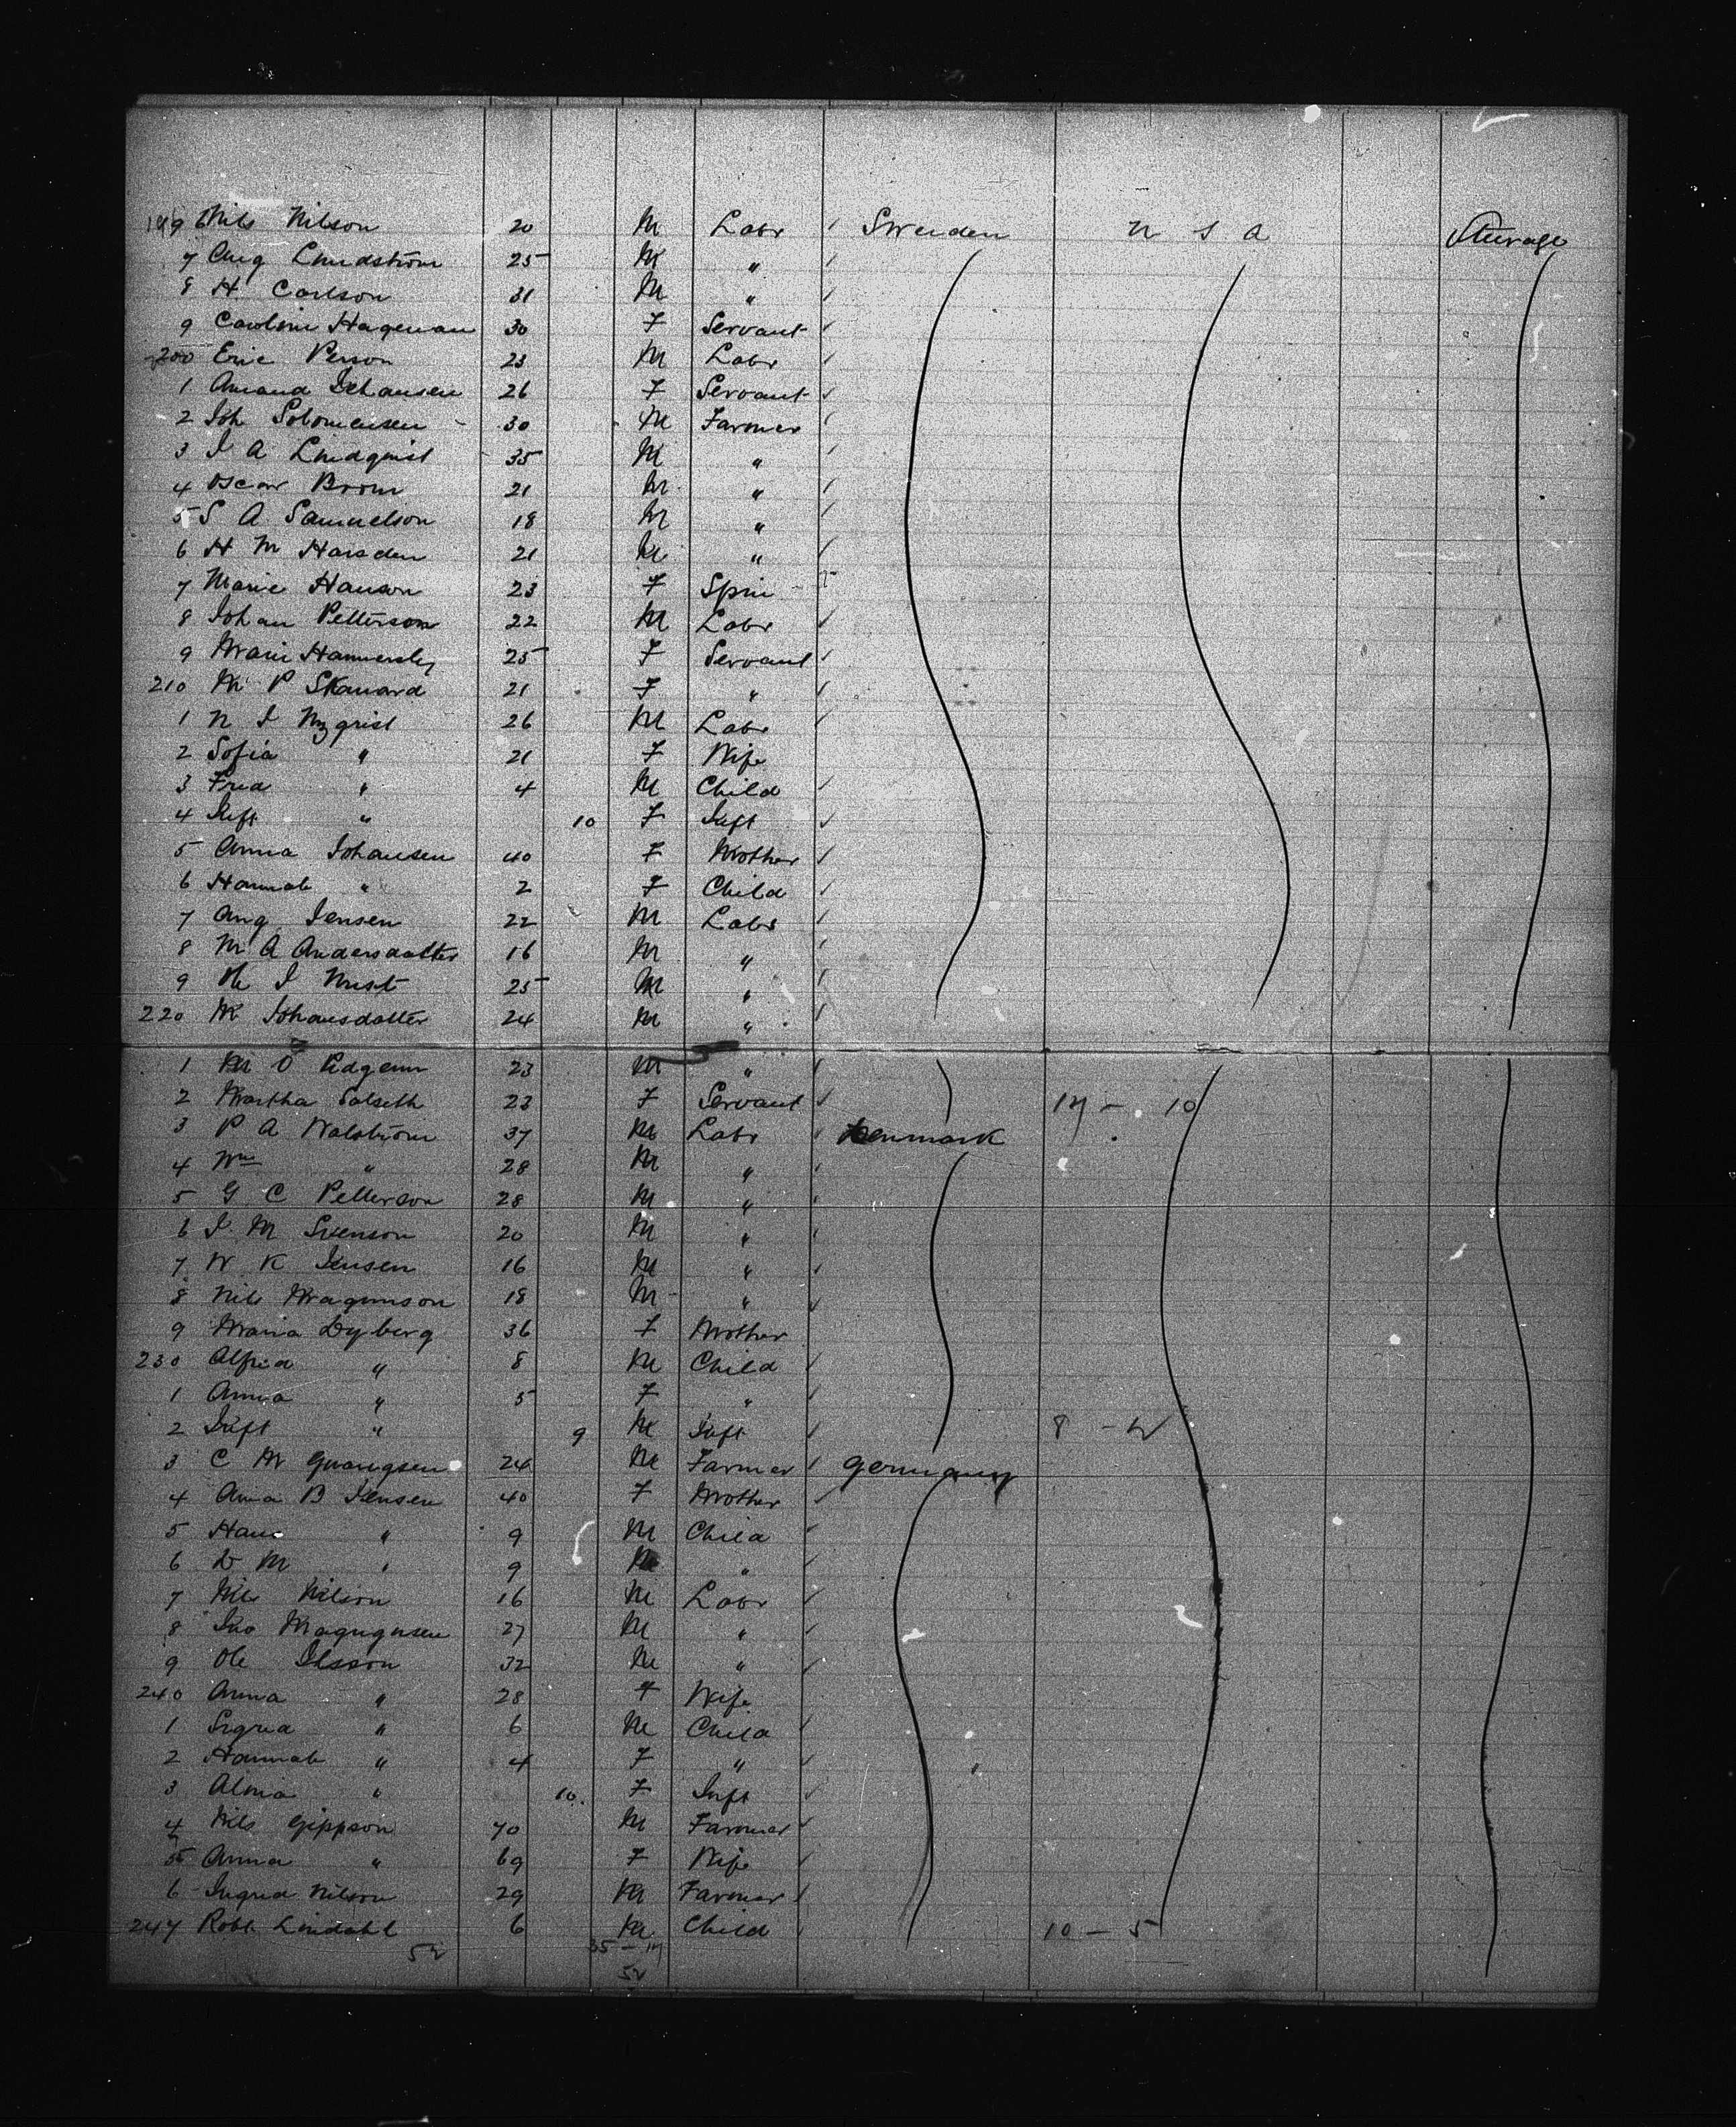 196 Nils Nilson 20 M Labr Sweden U S A Steerage
7 Aug Lundström 25 M "
8 H Carlson 31 M "
9 Caroline Hageman 30 F Servant
200 Eric Person 23 M Labr
1 Amand Johansen 26 F Servant
2 Joh Solomensen 30 M Farmer
3 J A Lindquist 35 M "
4 Oscar Brom 21 M "
5 S A Samuelson 18 M "
6 H M Harsden 21 M "
7 Marie Hanson 23 F Spin
8 Johan Petterson 22 M Labr
9 Marie Hammersly 25 F Servant
210 M P Skanard 21 F "
1 N J Nyqrist 26 M Labr
2 Sofia " 21 F Wife
3 Fred " 4 M Child
4 Inft " 10 F Inft
5 Anna Johansen 40 F Mother
6 Hannah " 2 F Child
7 Aug Jensen 22 M Labr
8 M A Andersdatter 16 M "
9 Ole J 25 M "
220 M Johansdatter 24 M "
1 M O 23 M "
2 Martha Solseth 23 F Servant 14 - 10
3 P A Walström 37 M Labr Denmark
4 Wm " 28 M "
5 G C Petterson 28 M "
6 J M Svenson 20 M "
7 W K Jensen 16 M "
8 Nils Magnuson 18 M "
9 Maria Dyberg 36 F Mother
230 Alfred " 8 M Child
1 Anna " 5 F "
2 Inft " 9 M Inft 8 - 2
3 C M 24 M Farmer Germany
4 Anna B Jensen 40 F Mother
5 Hans " 9 M Child
6 D M " 9 M "
7 Nils Nilson 16 M Labr
8 Jno Magngnsen 27 M "
9 Ole Ilsson 32 M "
240 Anna " 28 F Wife
1 Sigrid " 6 M Child
2 Hannah " 4 F "
3 Alma " 10 F Inft
4 Nils Gippson 70 M Farmer
5 Anna " 69 F Wife
6 Ingrid Nilson 29 M Farmer
247 Robt Lindahl 6 M Child 10 - 5
52 35 - 17
52